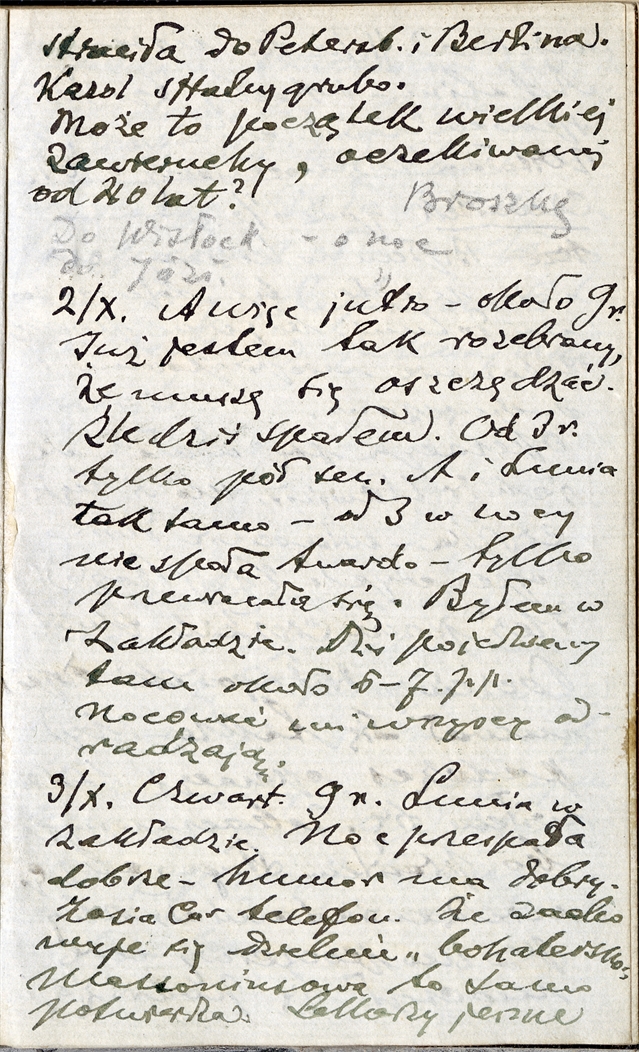 straciła do Petersb. i Berlina.
Karol grubo.
Może to początek wielkiej
zawieruchy, oczekiwanej
od 40 lat?
Broszkę
Do Wisłock. – o noc
do Józi.
2/X. A więc jutro – około 9 r.
Już jestem tak rozebrany,
że muszę się oszczędzać.
Źle dziś spałem. Od 3 r.
tylko pół sen. A i Lunia
tak samo – od 3 w nocy
nie spała twardo – tylko
przewracała się. Byłem w
Zakładzie. Dziś pojedziemy
tam około 6–7 p.p.
Nocować mi wszyscy od-
radzają.
3/X. Czwart. 9 r. Lunia w
zakładzie. Noc przespała
dobrze – humor ma dobry.
Zosia Car telefon. Że zacho
wuje się dzielnie „bohatersko"
to samo
potwierdza. Lekarzy jeszcze